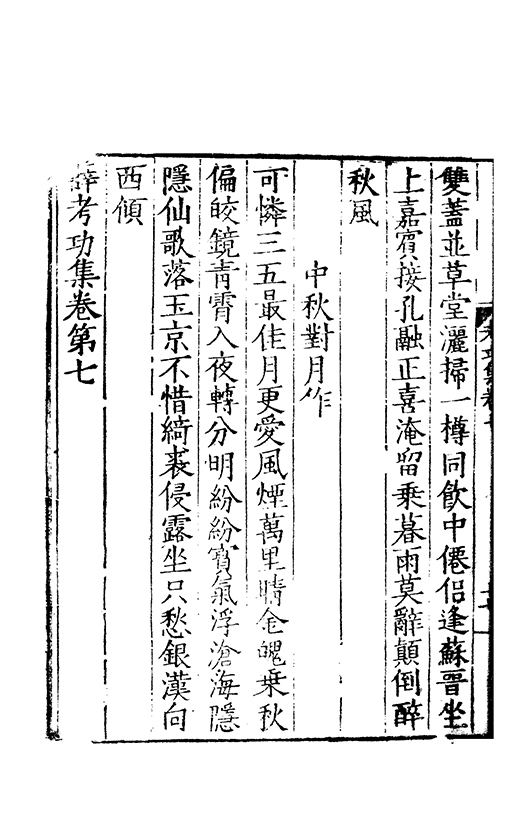 雙蓋並草堂灑掃一樽同飲中僊侣逢蘇晉坐
上嘉賓接孔融正喜淹留乗暮雨莫辭顛倒醉
秋風
中秋對月作
可憐三五最佳月更愛風煙萬里晴金魄乗秋
偏皎鏡青霄入夜轉分明紛紛寳氣浮滄海隱
隱仙歌落玉京不惜綺裘侵露坐只愁銀漢向
西傾
薛考功集卷第七